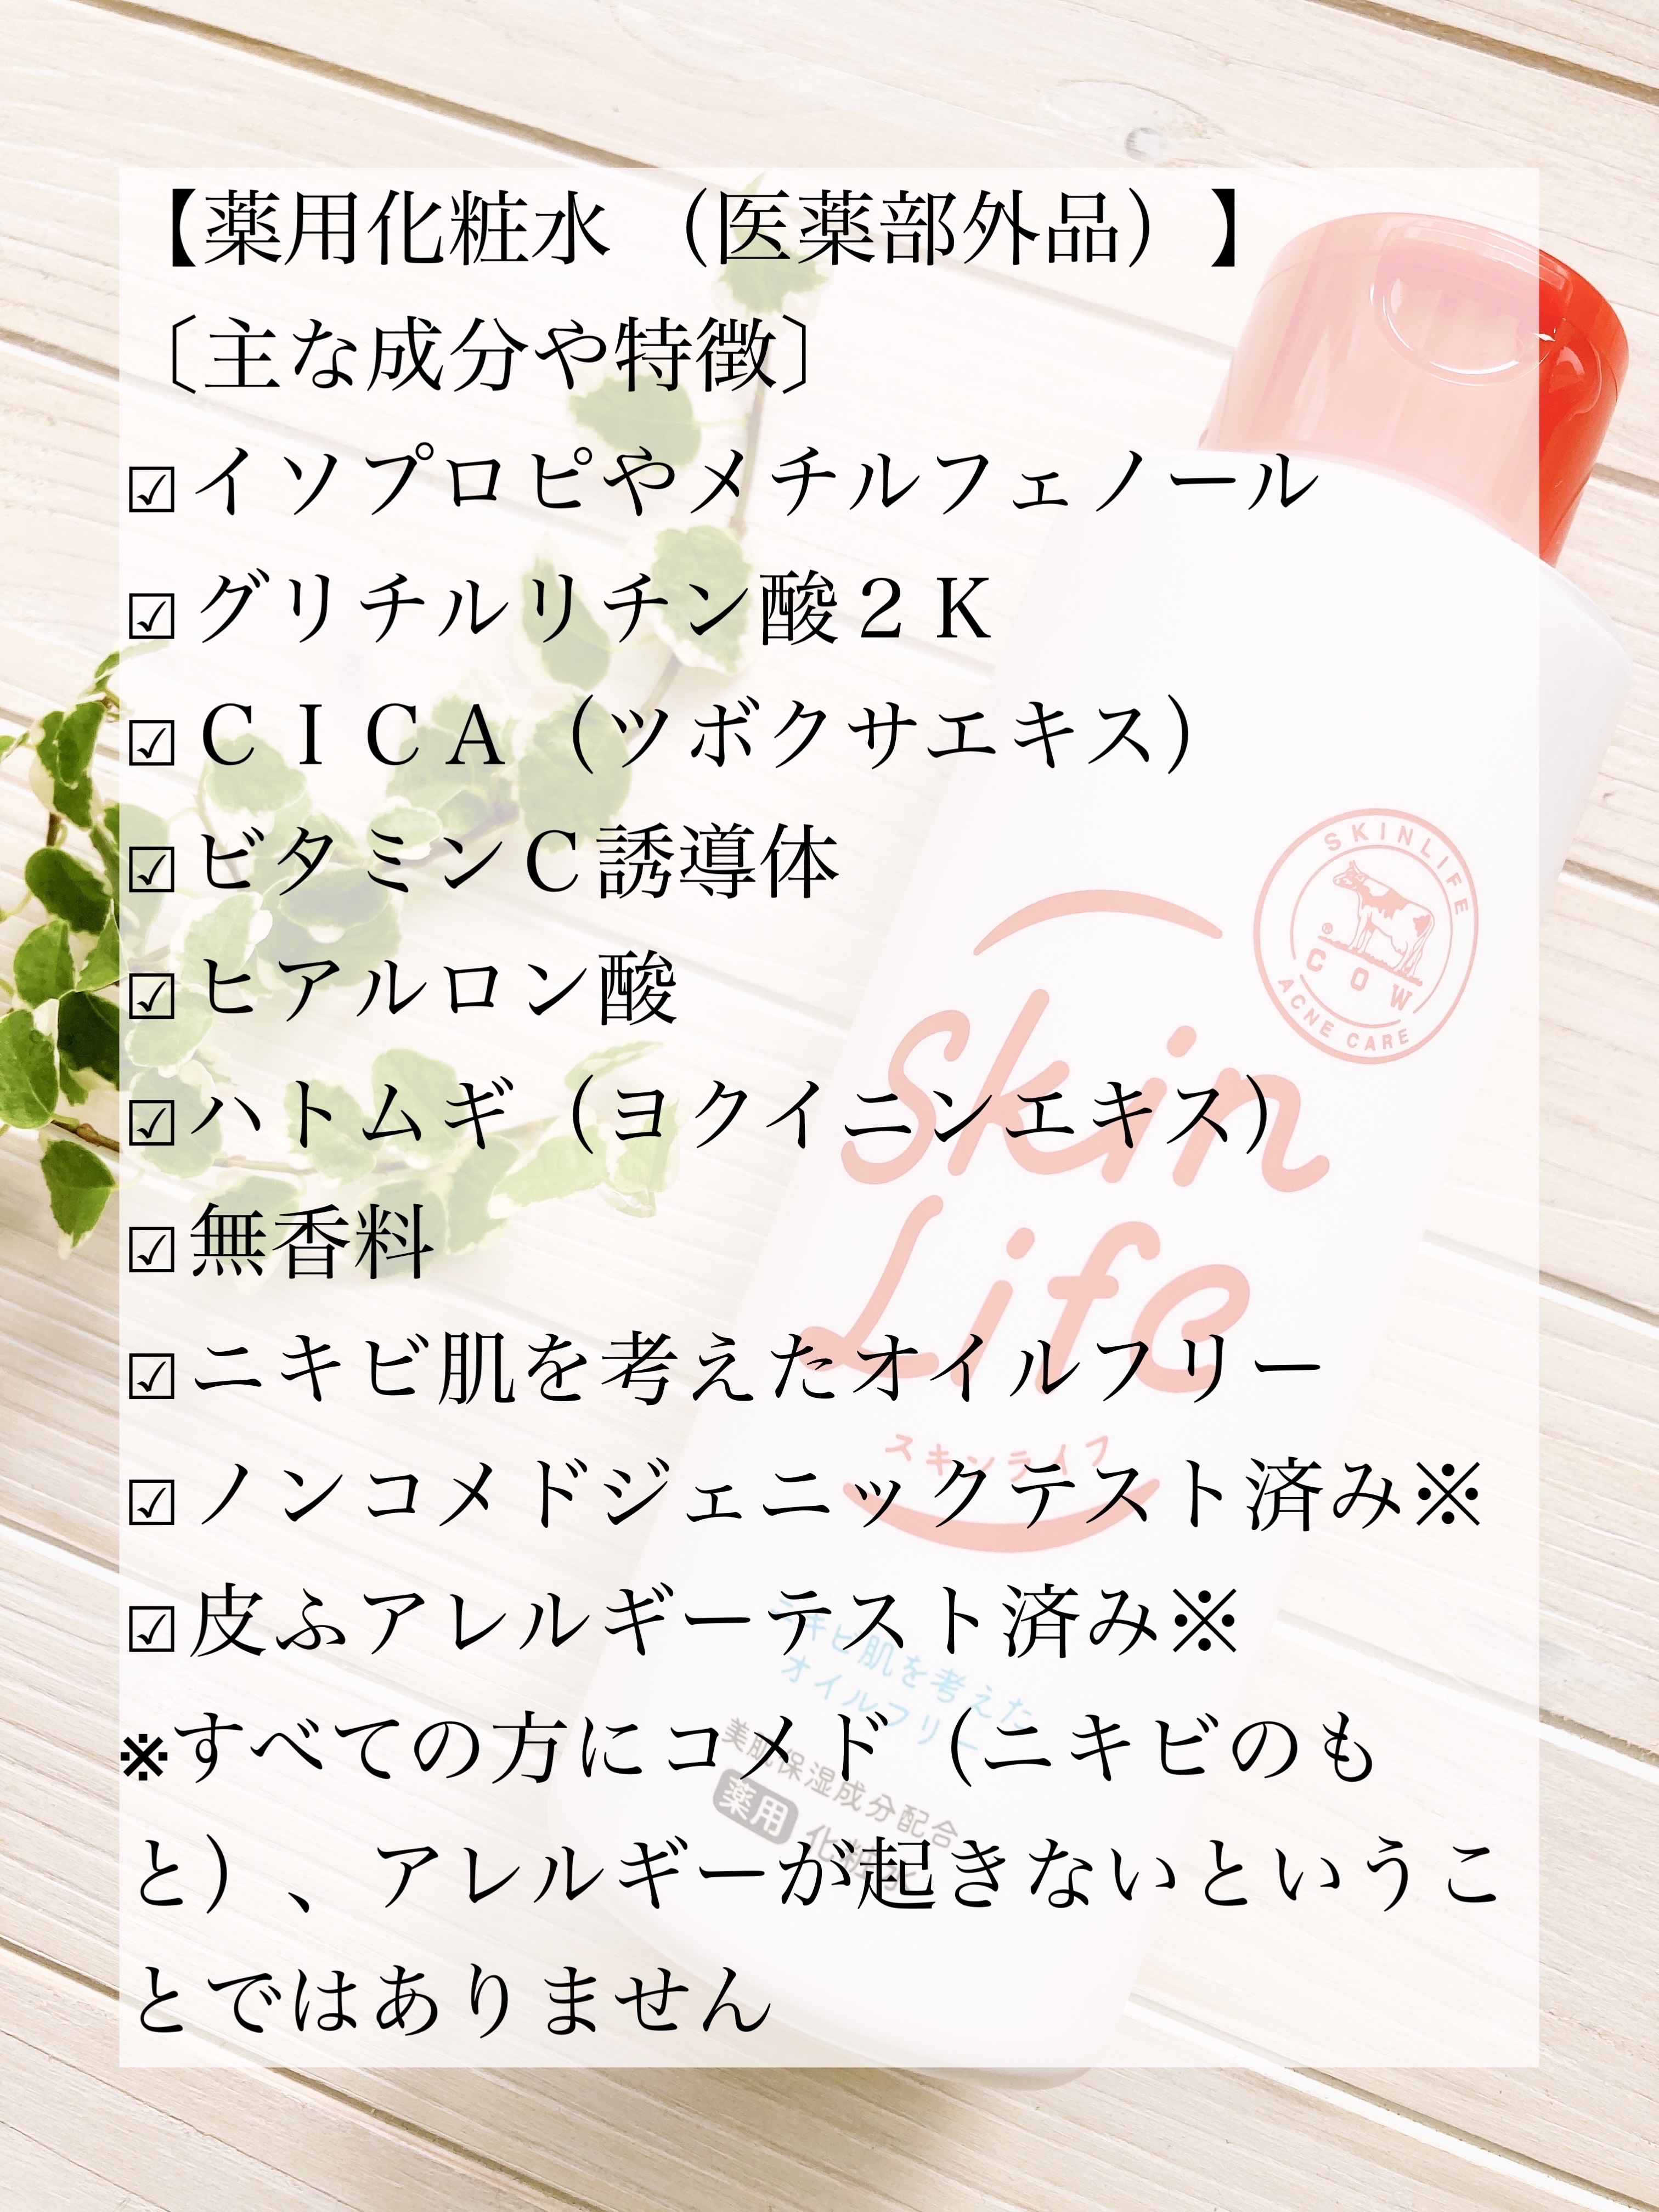 【薬用化粧水 （医薬部外品）】
〔主な成分や特徴〕
☑イソプロピやメチルフェノール
☑グリチルリチン酸２Ｋ
☑ＣＩＣＡ（ツボクサエキス）
☑ビタミンＣ誘導体
☑ヒアルロン酸
☑ハトムギ（ヨクイニンエキス）
☑無香料
☑ニキビ肌を考えたオイルフリー
☑ノンコメドジェニックテスト済み※
☑皮ふアレルギーテスト済み※
※すべての方にコメド（ニキビのも
と）、アレルギーが起きないというこ
とではありません
SKINLIFE
COW
ACNE CARE
Skin
Life
スキンライフ
ニキビ肌を考えた
オイルフリー
美肌保湿成分配合
薬用 化粧水